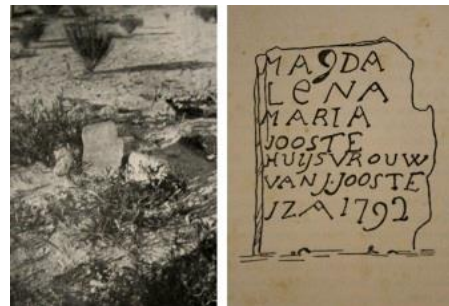 MAgDA
LeNA
MARIA
JOOSTE
HUIJSVROUW
VAN J. JOOSTE
JZA 1792